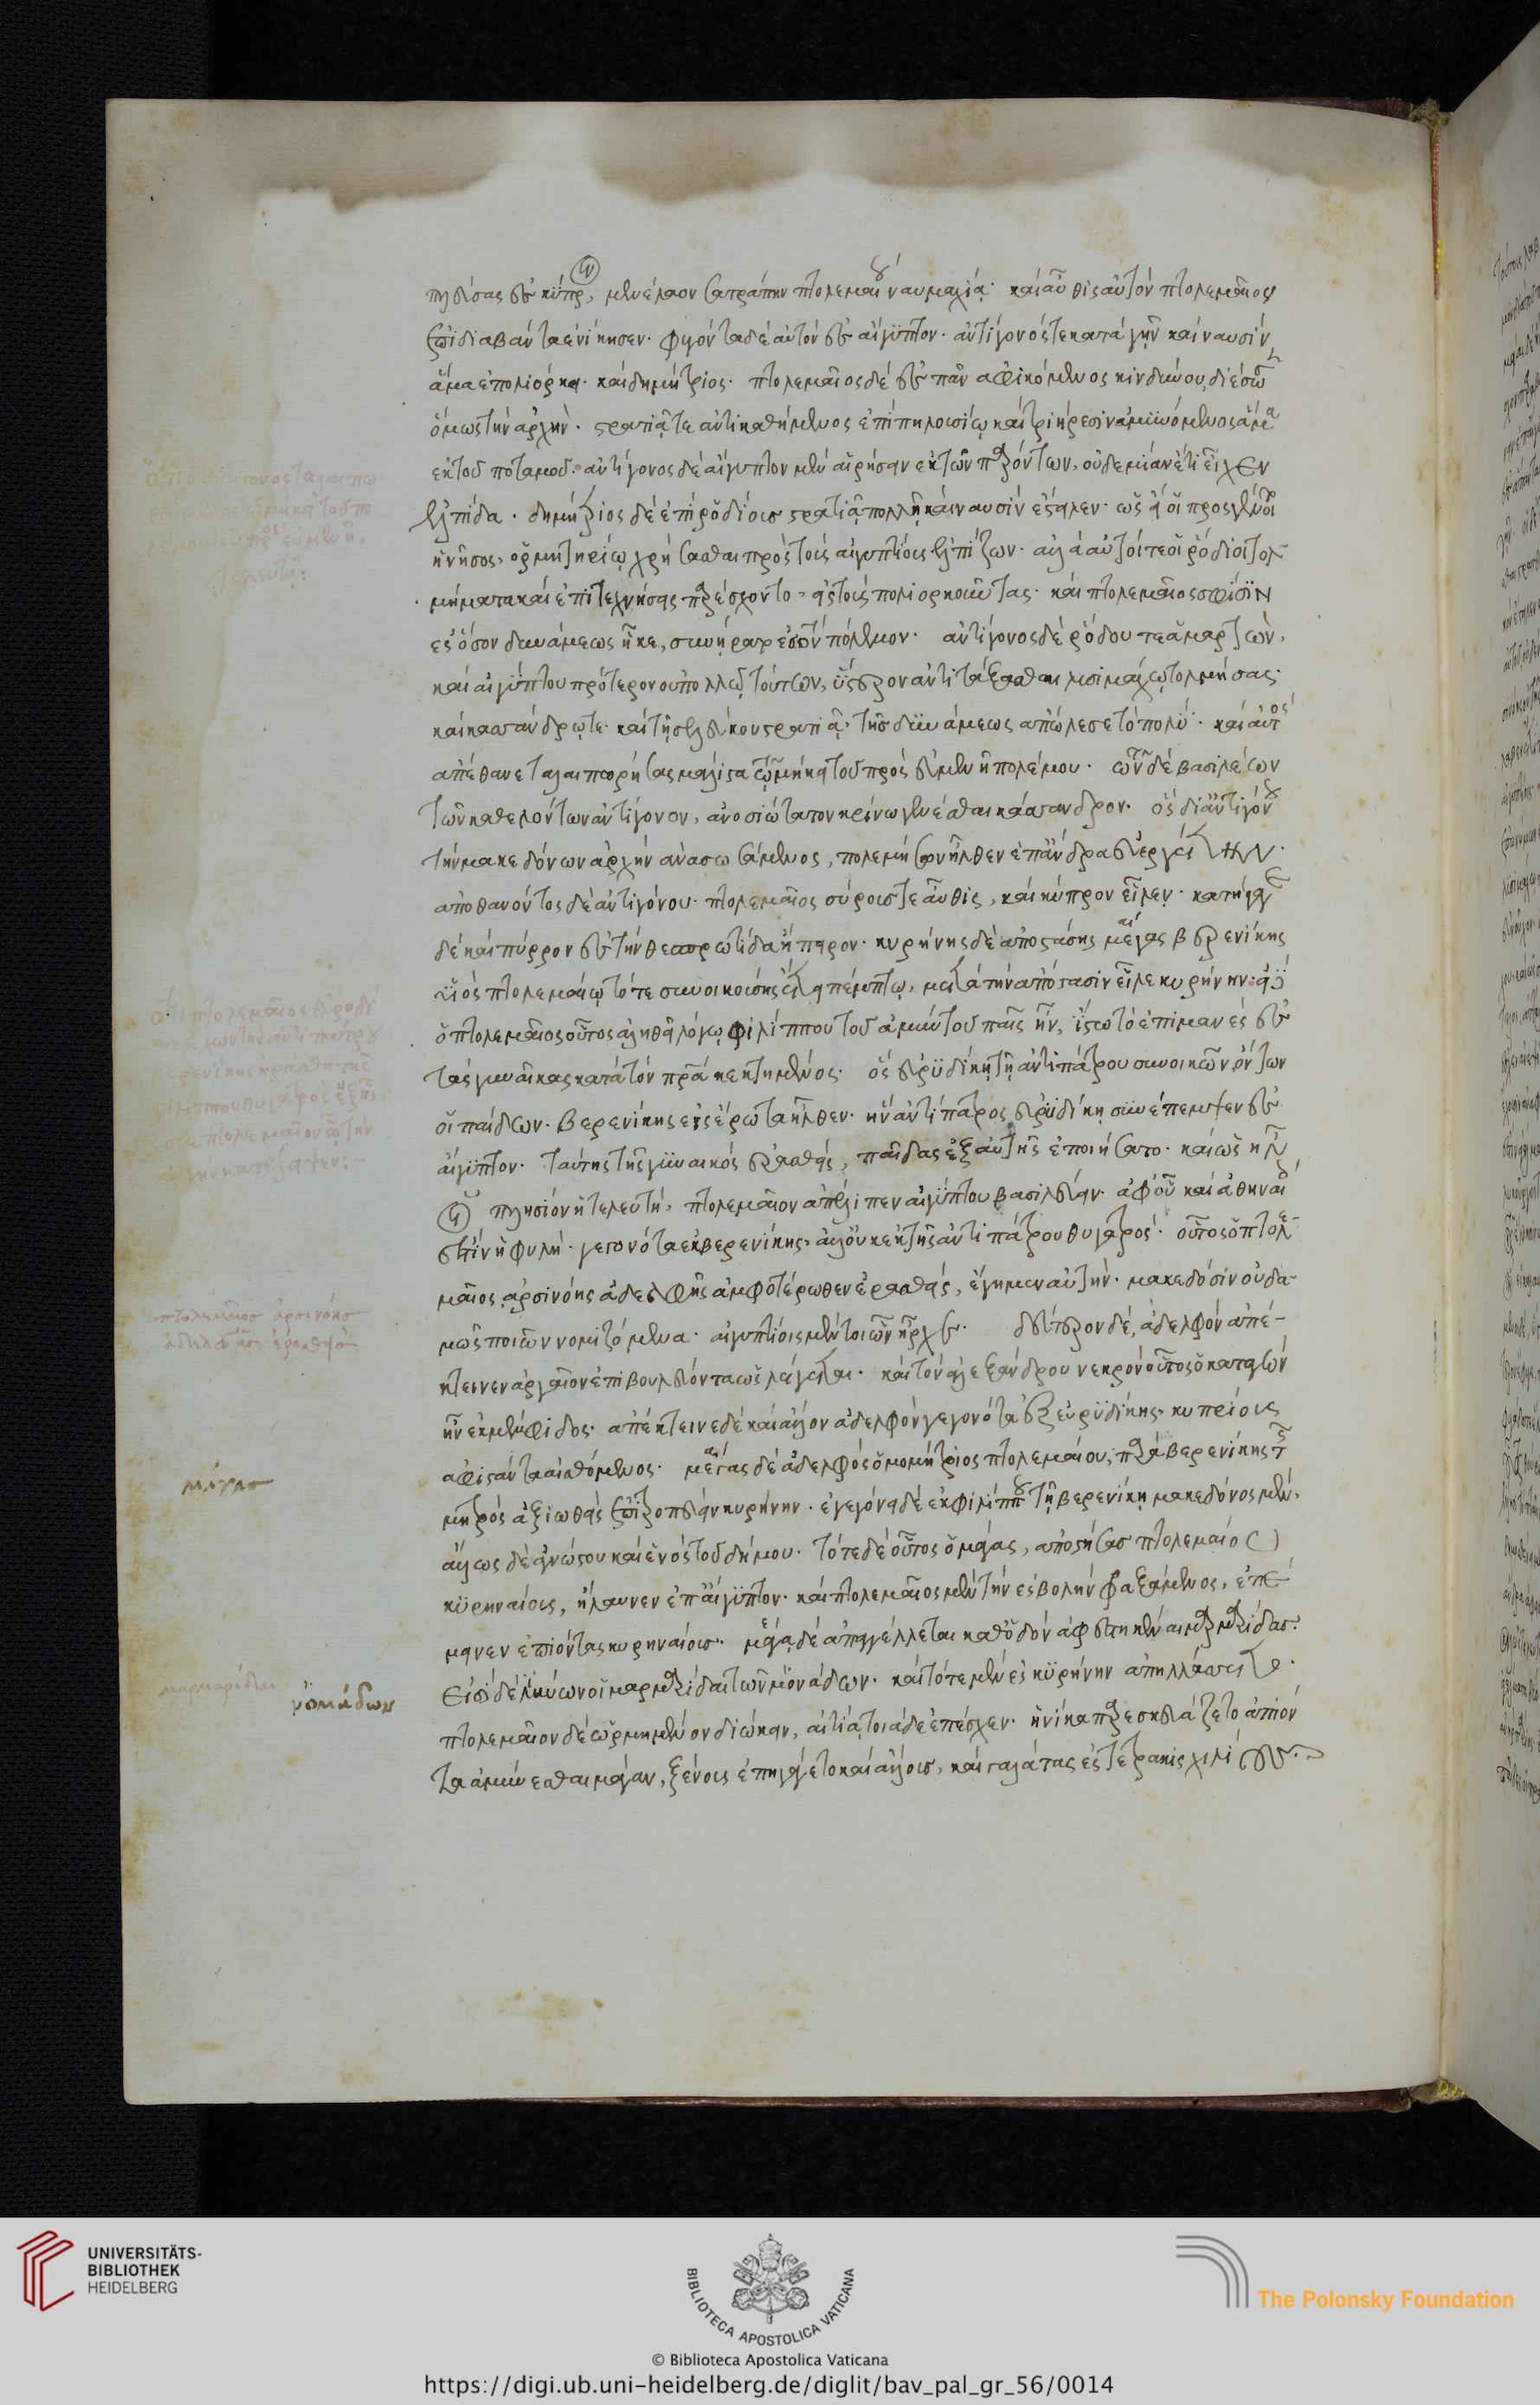 πηδήσας ἐς κύπρον, μενέλαον σατράπην πτολεμαίου ναυμαχία· καὶ αὖθις αὐτὸν πτολεμαῖον
ἐπιδιαβάντα ἐνίκησεν· φυγόντα δὲ αὐτὸν ἐς αἴγυπτον· ἀντίγονός τε κατὰ γῆν καὶ ναυσὶν
ἅμα ἐπολιόρκει· καὶ δημήτριος· πτολεμαῖος δὲ ἐς πᾶν ἀφικόμενος κινδύνου, διέσωσ
ὅμως τὴν ἀρχὴν· στρατιᾷ τε ἀντικαθήμενος ἐπὶ πηλουσίῳ καὶ τριήρεσιν ἀμυνόμενος ἅμα
ἐκ τοῦ ποταμοῦ· ἀντίγονος δὲ αἴγυπτον μὲν αἱρήσειν ἐκ τῶν παρόντων, οὐδεμίαν ἔτι εἶχεν
ἐλπίδα. δημήτριος δὲ ἐπὶ ῥοδίοις στρατιᾷ πολλῇ καὶ ναυσὶν ἔστειλεν· ὡς εἴ οἱ προσγένοι
ἡ νῆσος, ὁρμητηρίῳ χρήσασθαι πρὸς τοὺς αἰγυπτίους ἐλπίζων· ἀλλὰ αὐτοί τε οἱ ῥόδιοι τολ-
μήματα καὶ ἐπιτεχνήσεις παρέσχοντο ἐς τοὺς πολιορκοῦντας· καὶ πτολεμαῖος σφίσιν
ἐς ὅσον δυνάμεως ἧκε, συνήρατο ἐς τὸν πόλεμον· ἀντίγονος δὲ ῥόδου τε ἁμαρτὼν,
καὶ αἰγύπτου πρότερον οὐ πολλῷ τούτων, ὕστερον ἀντιτάξασθαι λυσιμάχῳ τολμήσας·
καὶ κασάνδρῳ τε καὶ τῇ σελεύκου στρατιᾷ· τῆς δυνάμεως ἀπώλεσε τὸ πολύ· καὶ αὐτὸς
ἀπέθανε ταλαιπωρήσας μάλιστα τῷ μήκει τοῦ πρὸς εὐμενῆ πολέμου· τῶν δὲ βασιλέων
τῶν καθελόντων ἀντίγονον, ἀνοσιώτατον κρίνω γενέσθαι κάσανδρον· ὃς δι' ἀντιγόνου
τὴν μακεδόνων ἀρχὴν ἀνασωσάμενος, πολεμήσων ἦλθεν ἐπ' ἄνδρα εὐεργέτην.
ἀποθανόντος δὲ ἀντιγόνου· πτολεμαῖος σύρους τε αὖθις, καὶ κύπρον εἷλεν· κατήγαγε
δὲ καὶ πύρρον ἐς τὴν θεσπρωτίδα ἤπειρον· κυρήνης δὲ ἀποστάσης μάγας βερενίκης
υἱὸς πτολεμαίῳ τότε συνοικούσης ἔτει πέμπτῳ, μετὰ τὴν ἀπόστασιν εἷλε κυρήνην· εἰ δὲ
ὁ πτολεμαῖος οὗτος ἀληθεῖ λόγῳ φιλίππου τοῦ ἀμύντου παῖς ἦν, ἴστω τὸ ἐπιμανὲς ἐς
τὰς γυναῖκας κατὰ τὸν πατέρα κεκτημένος· ὃς εὐρυδίκῃ τῇ ἀντιπάτρου συνοικῶν ὄντων
οἱ παίδων· βερενίκης εἰς ἔρωτα ἦλθεν· ἣν ἀντίπατρος εὐρυδίκῃ συνέπεμψεν ἐς
αἴγυπτον· ταύτης τῆς γυναικὸς ἐρασθεὶς, παῖδας ἐξ αὐτῆς ἐποιήσατο· καὶ ὡς ἦν
οἱ πλησίον ἡ τελευτὴ, πτολεμαῖον ἀπέλιπεν αἰγύπτου βασιλεύειν· ἀφ' οὗ καὶ ἀθηναί
ἐστὶν ἡ φυλὴ· γεγονότα ἐκ βερενίκης, ἀλλ' οὐκ ἐκ τῆς ἀντιπάτρου θυγατρός· οὗτος ὁ πτολε-
μαῖος ἀρσινόης ἀδελφῆς ἀμφοτέρωθεν ἐρασθεὶς, ἔγημεν αὐτὴν· μακεδόσιν οὐδα-
μῶς ποιῶν νομιζόμενα· αἰγυπτίοις μέντοι ὧν ἦρχε· δεύτερον δὲ, ἀδελφὸν ἀπέ-
κτεινεν ἀργαῖον ἐπιβουλεύοντα ὡς λέγεται· καὶ τὸν ἀλεξάνδρου νεκρὸν οὗτος ὁ καταγαγὼν
ἦν ἐκ μέμφιδος· ἀπέκτεινε δὲ καὶ ἄλλον ἀδελφὸν γεγονότα ἐξ εὐρυδίκης, κυπρίους
ἀφιστάντα αἰσθόμενος· μάγας δὲ ἀδελφὸς ὁμομήτριος πτολεμαίου, παρὰ βερενίκης τῆς
μητρὸς ἀξιωθεὶς ἐπιτροπεύειν κυρήνην· ἐγεγόνει δὲ ἐκ φιλίππου τῇ βερενίκῃ μακεδόνος μὲν,
ἄλλως δὲ ἀγνώστου καὶ ἑνὸς τοῦ δήμου· τότε δὲ οὗτος ὁ μάγας, ἀποστήσας πτολεμαίου
κυρηναίους, ἤλαυνεν ἐπ' αἴγυπτον· καὶ πτολεμαῖος μὲν τὴν ἐσβολὴν φραξάμενος, ἐπέ-
μενεν ἐπιόντας κυρηναίους· μάγᾳ δὲ ἀπαγγέλλεται καθ' ὁδὸν ἀφεστηκέναι μαρμαρίδας·
εἰσὶ δὲ λιβύων οἱ μαρμαρίδαι τῶν μονάδων· καὶ τότε μὲν ἐς κυρήνην ἀπηλλάσσετο·
πτολεμαῖον δὲ ὡρμημένον διώκειν, αἰτία τοιάδε ἐπέσχεν· ἡνίκα παρεσκευάζετο ἐπιόν
τα ἀμύνεσθαι μάγαν, ξένους ἐπηγάγετο καὶ ἄλλους, καὶ γαλάτας ἐς τετρακισχιλίους.
πτολεμαῖος ἀρσινόης
ἀδελφῆς ἐρασθεὶς
μάγας
μαρμαρίδαι
νομάδων
UNIVERSITÄTS-
BIBLIOTHEK
HEIDELBERG
BIBLIOTECA APOSTOLICA VATICANA
The Polonsky Foundation
© Biblioteca Apostolica Vaticana
https://digi.ub.uni-heidelberg.de/diglit/bav_pal_gr_56/0014